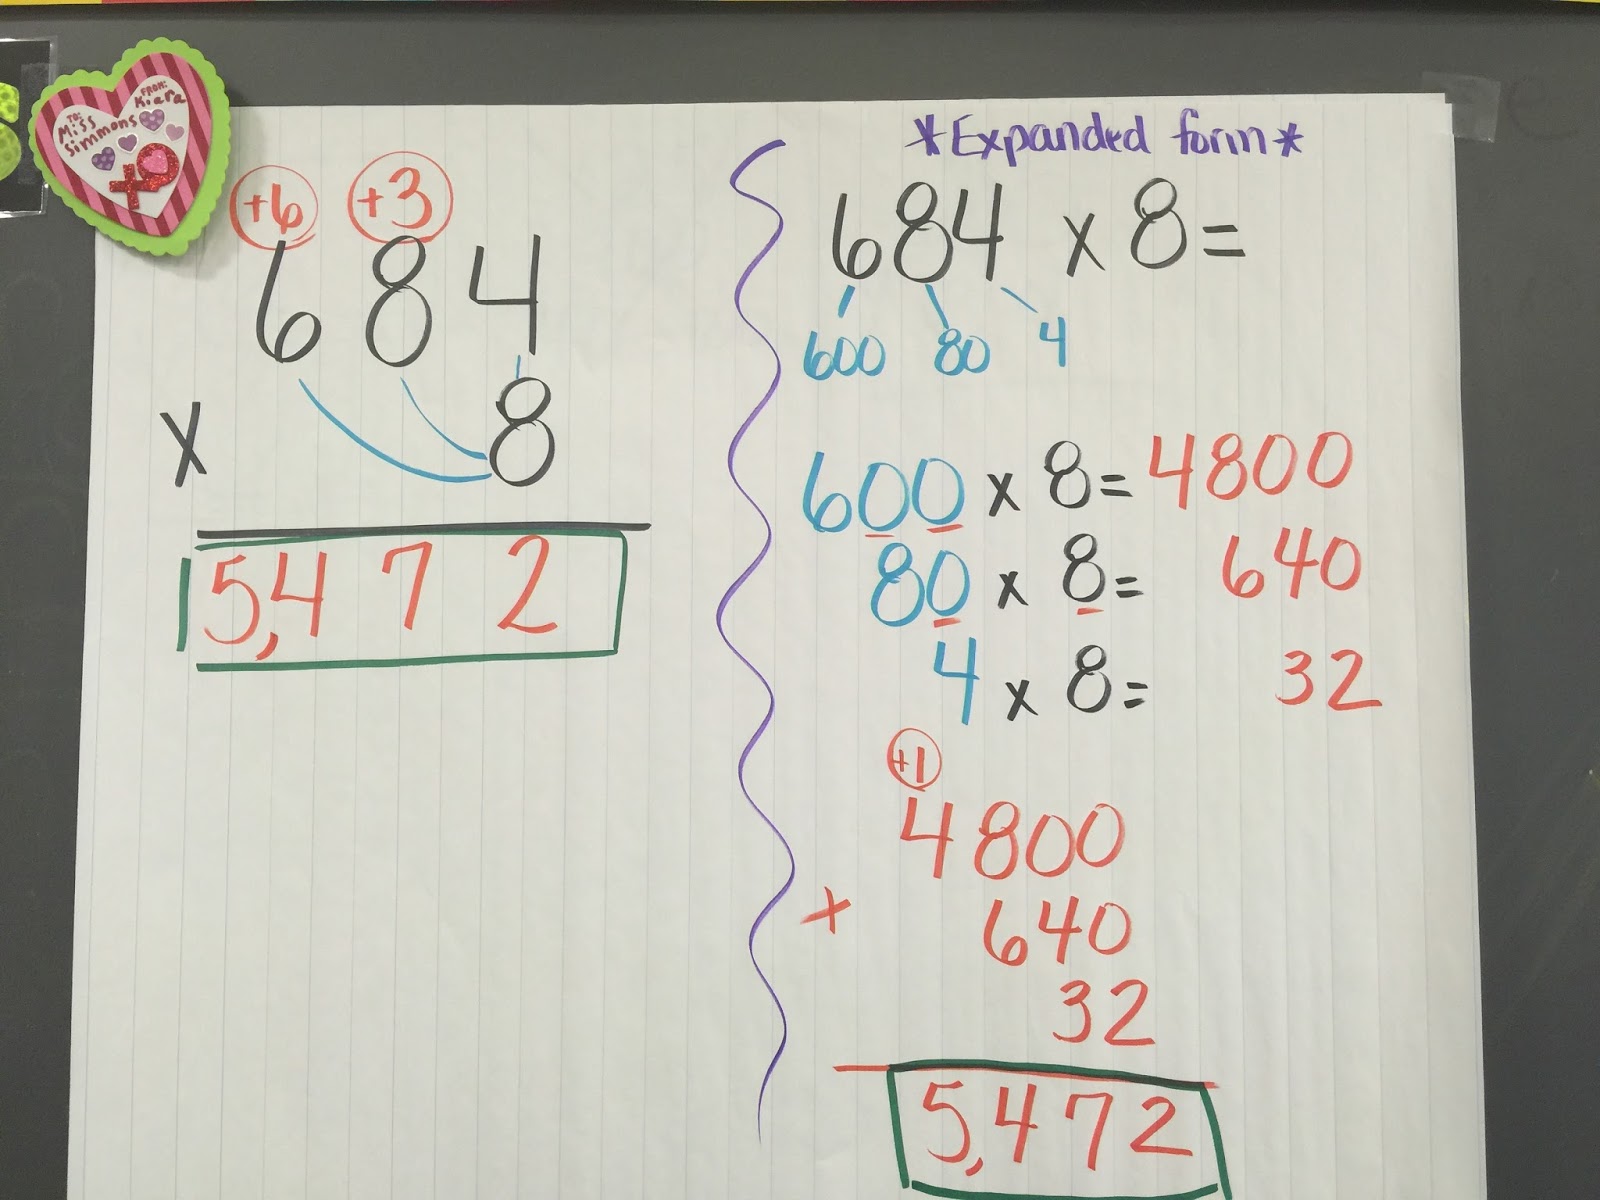 TO:
Miss
Simmons
FROM:
Kiara
+6 +3
684
x 8
5,472
*Expanded form*
684 x 8=
600 80 4
600 x 8= 4800
80 x 8= 640
4 x 8= 32
+1
4800
+ 640
32
5,472